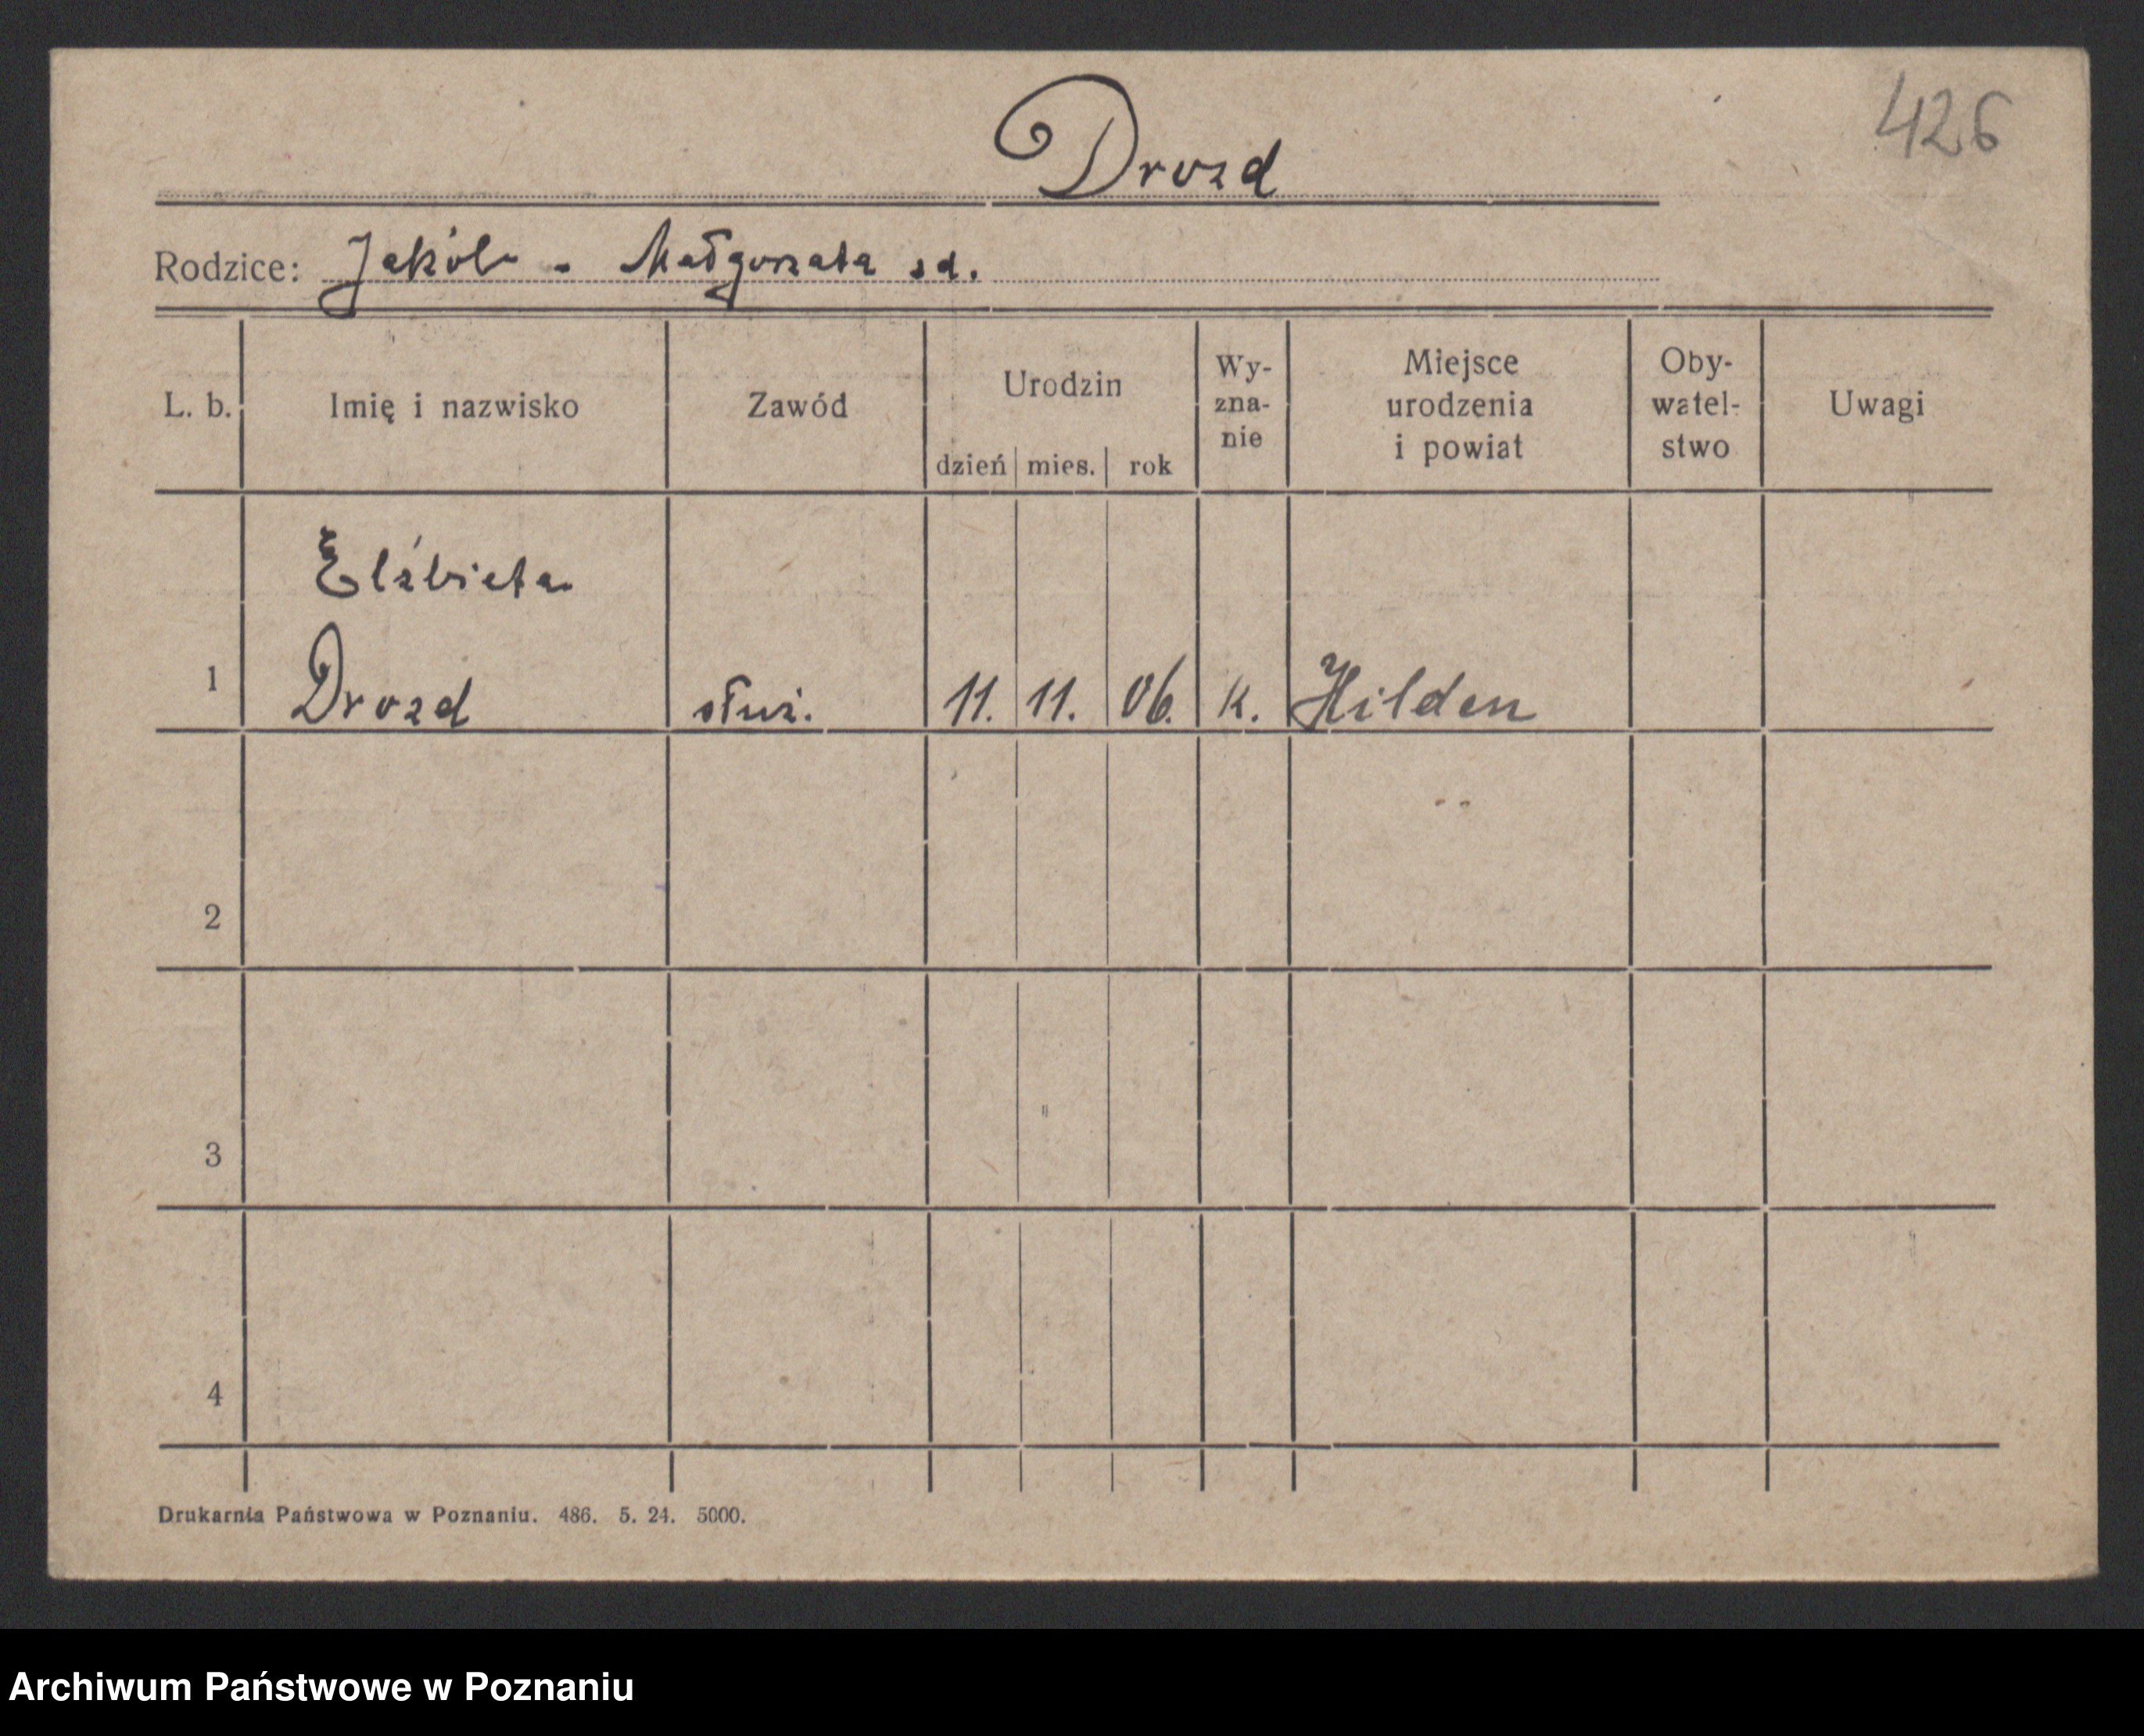 426
Drozd
Rodzice: Jakób - Małgorzata sd.
L. b. Imię i nazwisko Zawód Urodzin dzień mies. rok Wy-zna-nie Miejsce urodzenia i powiat Oby-watel-stwo Uwagi
Elżbieta
1 Drozd służ. 11. 11. 06. k. Hilden
2
3
4
Drukarnia Państwowa w Poznaniu. 486. 5. 24. 5000.
Archiwum Państwowe w Poznaniu